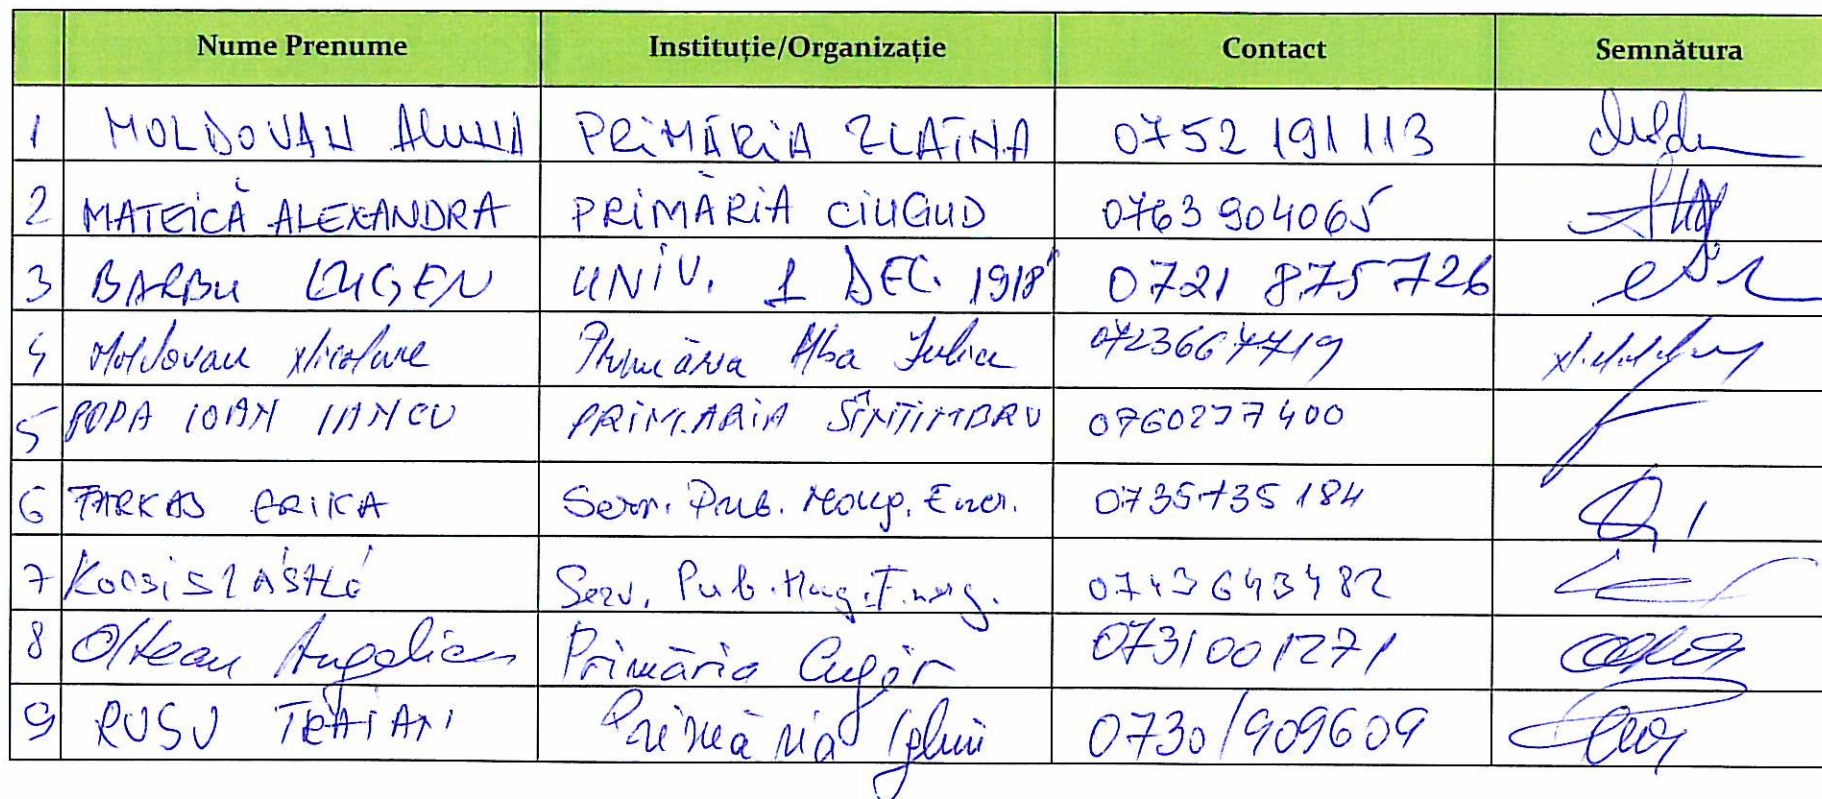 Nume Prenume Instituție/Organizație Contact Semnătura
1 MOLDOVAN ALINA PRIMĂRIA ZLATNA 0752 191 113
2 MATEICĂ ALEXANDRA PRIMĂRIA CIUGUD 0763 904065
3 BARBU EUGEN UNIV. 1 DEC. 1918" 0721 875 726
4 Moldovan Nicolae Primăria Alba Iulia
5 POPA IOAN IANCU PRIMARIA SÎNTIMBRU 0760277400
6 FARKAS ERIKA Serv. Pub. Ener. 0735735184
7 Kocsis Serv. Pub. 0743643482
8 Oltean Angelica Primăria Cugir 0731001271
9 RUSU TRAIAN Primăria Ighiu 0730/909609